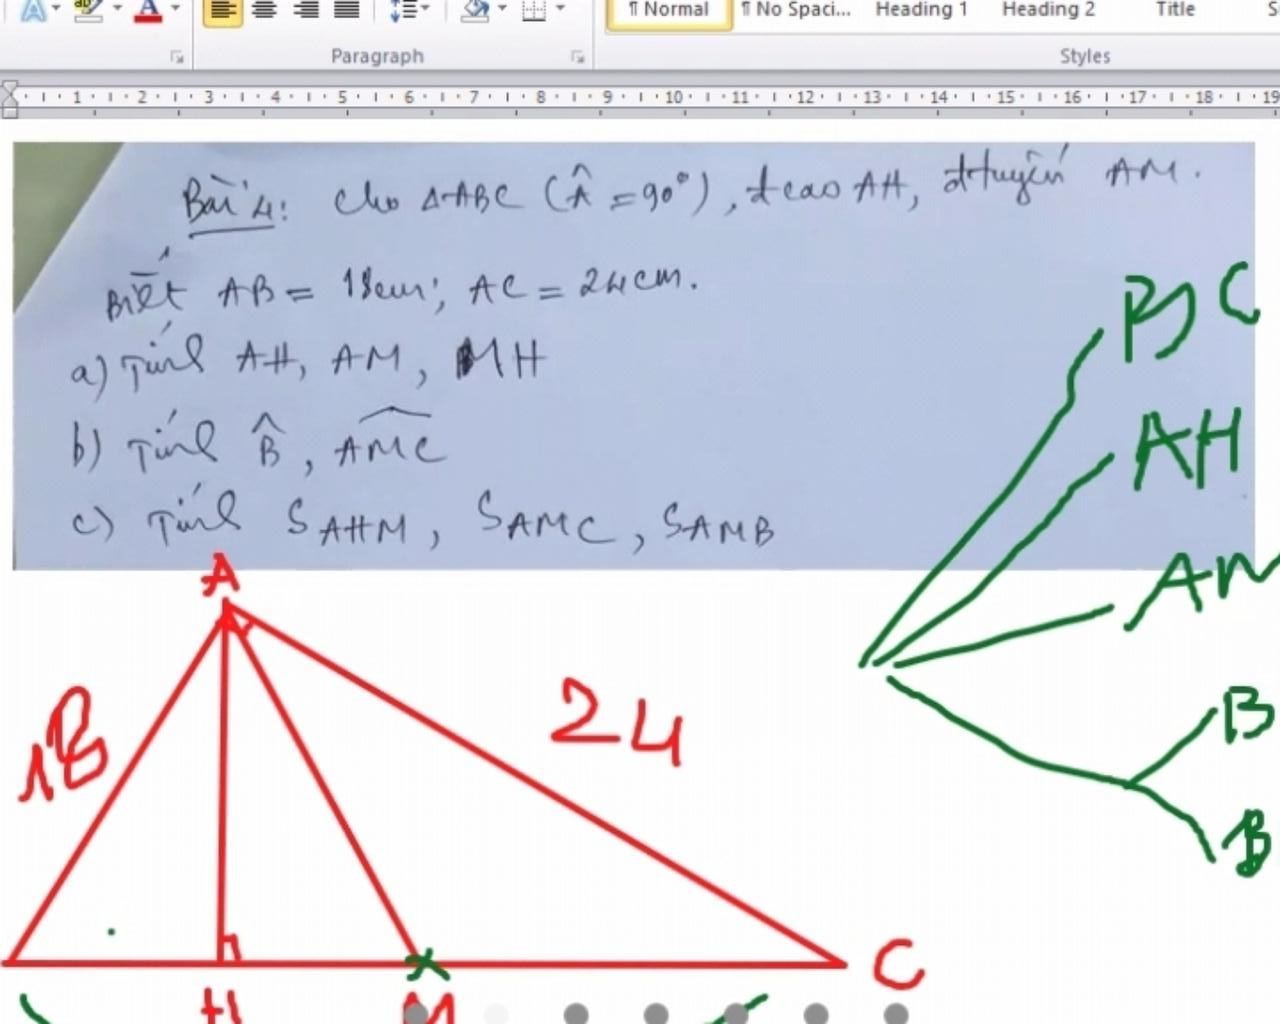 Normal No Spaci... Heading 1 Heading 2 Title
Paragraph Styles
1 2 3 4 5 6 7 8 9 10 11 12 13 14 15 16 17 18 19
Bài 4: Cho ΔABC (Â = 90°), đcao AH, đtuyến AM.
Biết AB = 18cm; AC = 24cm.
a) Tính AH, AM, MH
b) Tính B̂, AMC
c) Tính SAHM, SAMC, SAMB
BC
AH
AM
A
18
24
B
B
C
H
M